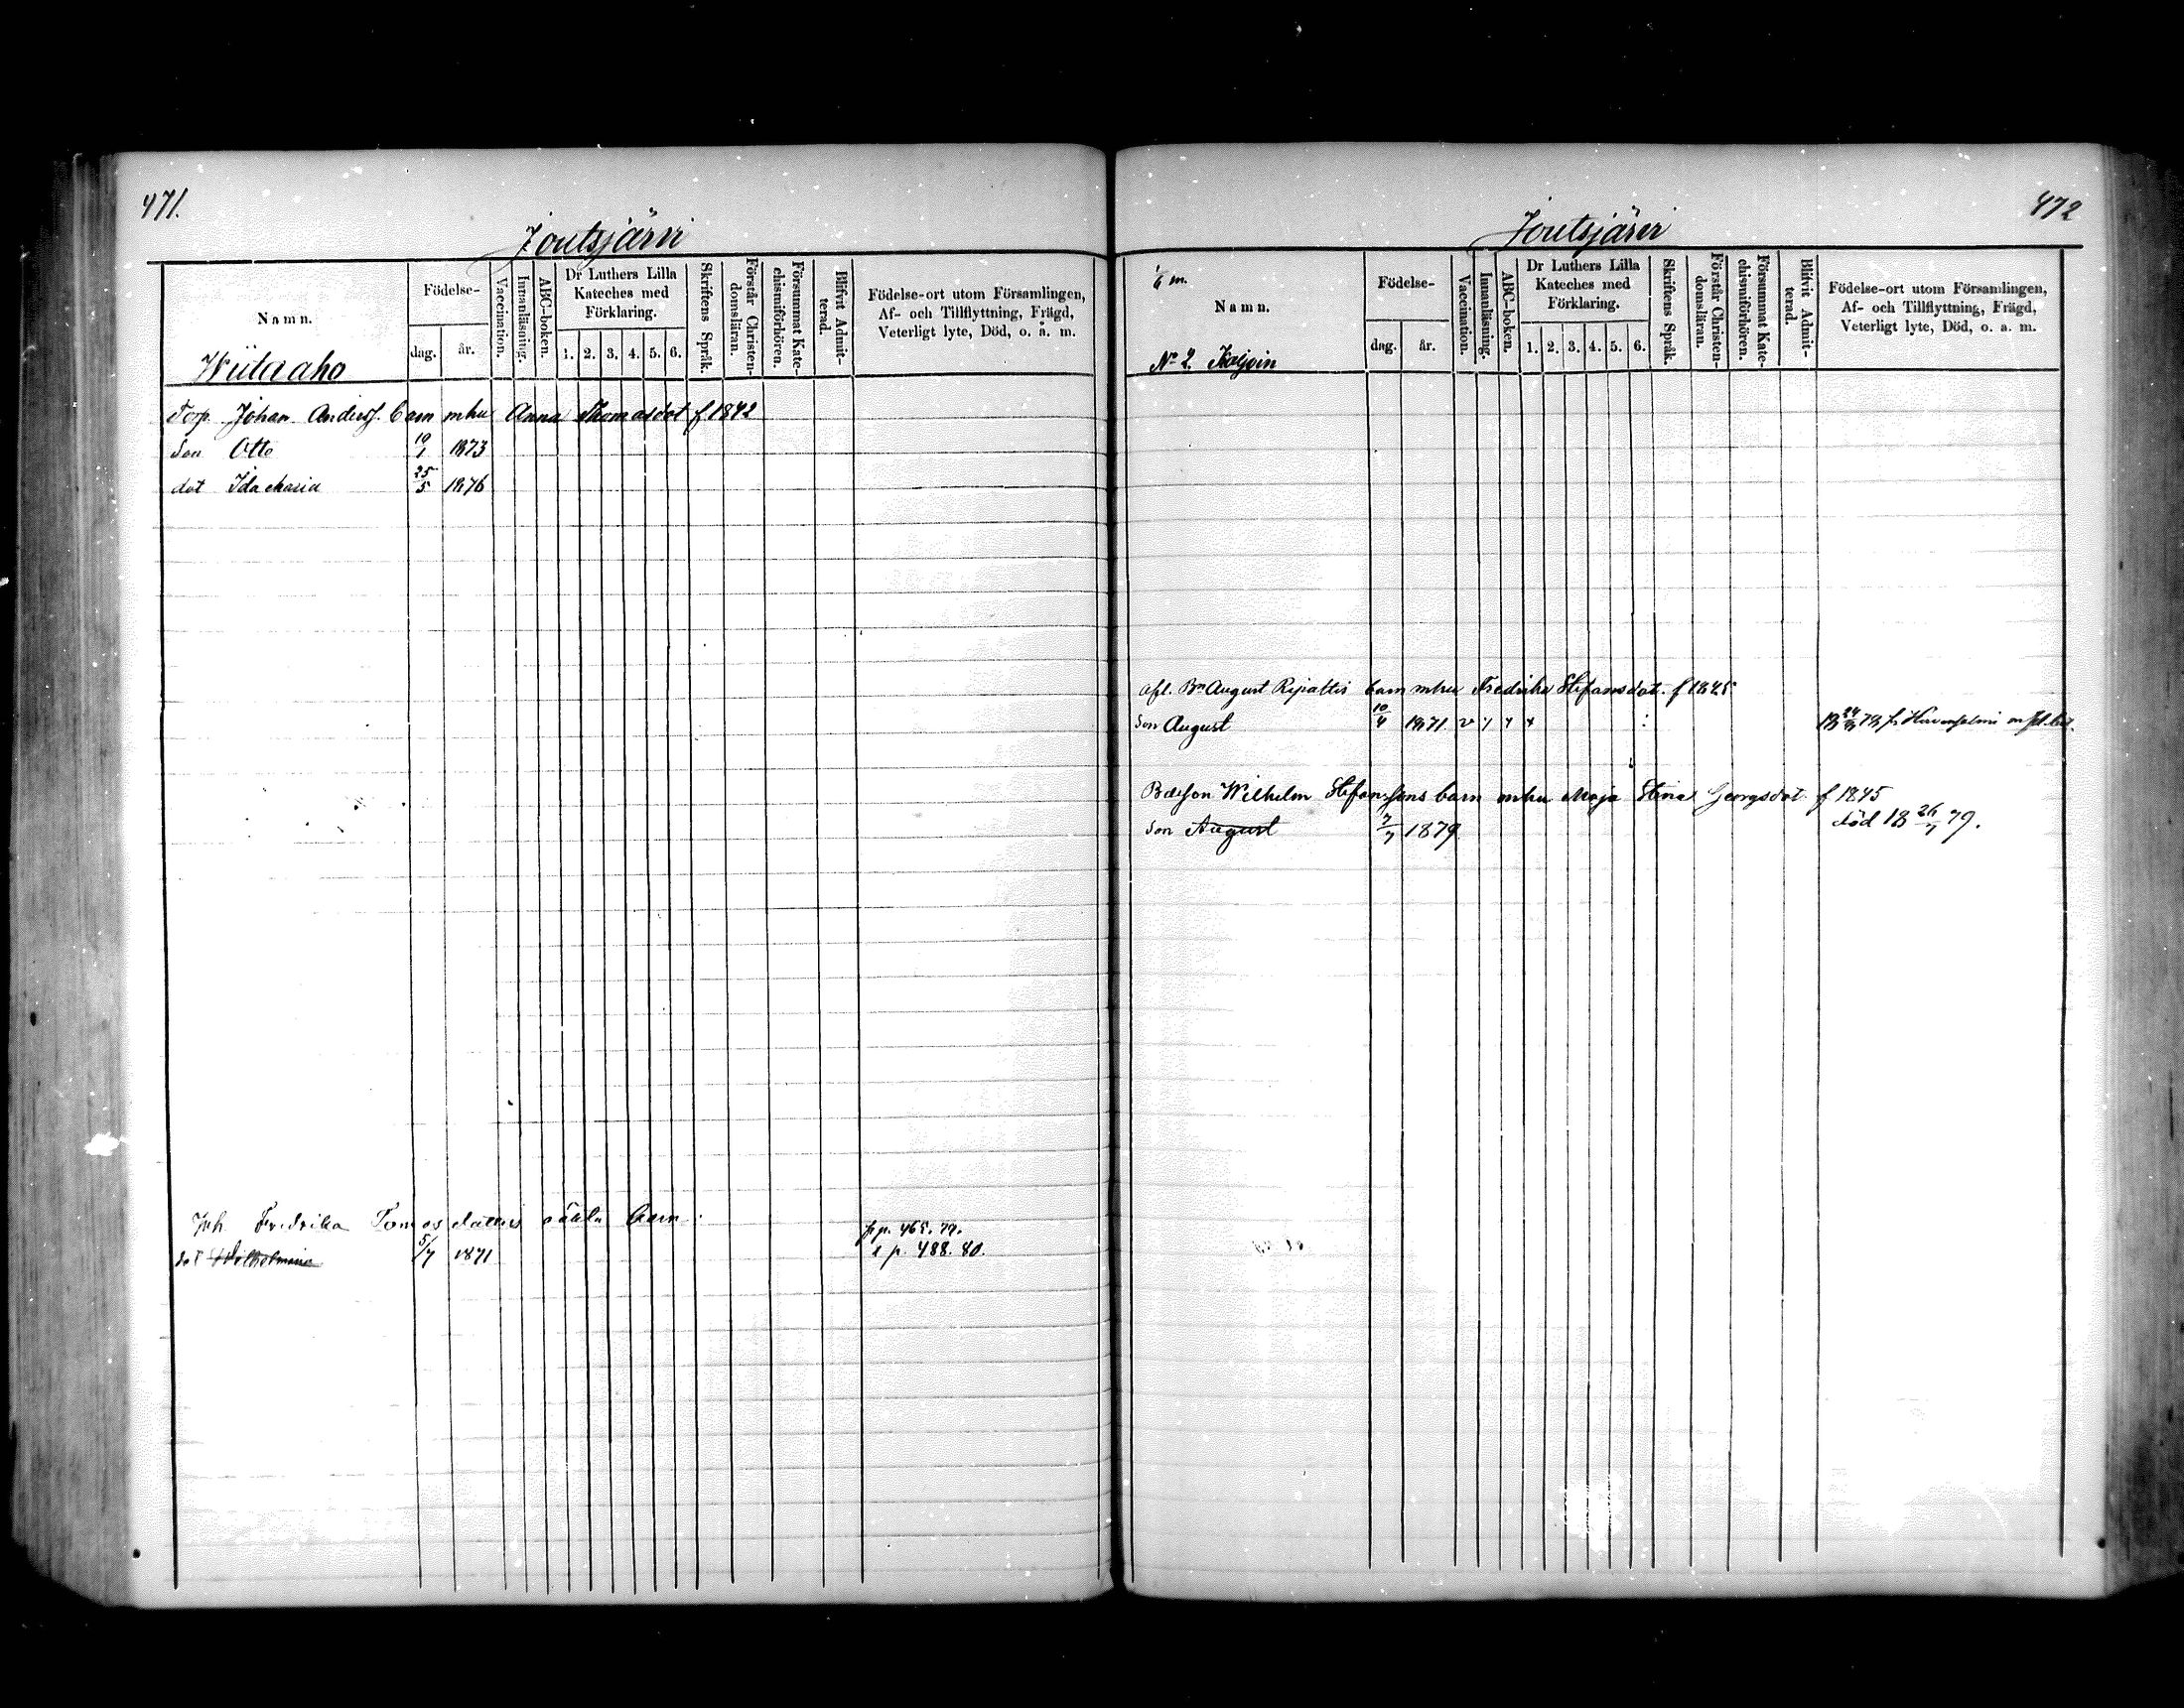 471.
Joutsjärvi
Namn.
Födelse-
dag.
år.
Vaccination.
Innanläsning.
ABC-boken.
Dr Luthers Lilla
Kateches med
Förklaring.
1. 2. 3. 4. 5. 6.
Skriftens Språk.
Förstår Christen-
domsläran.
Försummat Kate-
chismiförhören.
Blifvit Admit-
terad.
Födelse-ort utom Församlingen,
Af- och Tillflyttning, Frägd,
Veterligt lyte, Död, o. a. m.
Wiitaaho
Torp. Johan Anderss. barn mhu Anna Thomasdot f. 1842
Son Otto 19/1 1873
dot Ida Maria 25/5 1876
Inh. Fredrika Tomasdotters oäkta barn
fr p. 465. 79.
dot Wilhelmina 5/7 1871 t p. 488. 80.
472
Joutsjärvi
1/6 m.
Namn.
Födelse-
dag.
år.
Vaccination.
Innanläsning.
ABC-boken.
Dr Luthers Lilla
Kateches med
Förklaring.
1. 2. 3. 4. 5. 6.
Skriftens Språk.
Förstår Christen-
domsläran.
Försummat Kate-
chismiförhören.
Blifvit Admit-
terad.
Födelse-ort utom Församlingen,
Af- och Tillflyttning, Frägd,
Veterligt lyte, Död, o. a. m.
No 2.
afl. Bn August barn mhu Fredrika Stefansdot. f 1845
Son August 10/4 1871 v
Wilhelm Stefanssons barn mhu Maja Stina Georgsdot f 1845
Son August 7/7 1879 död 18 26/7 79.